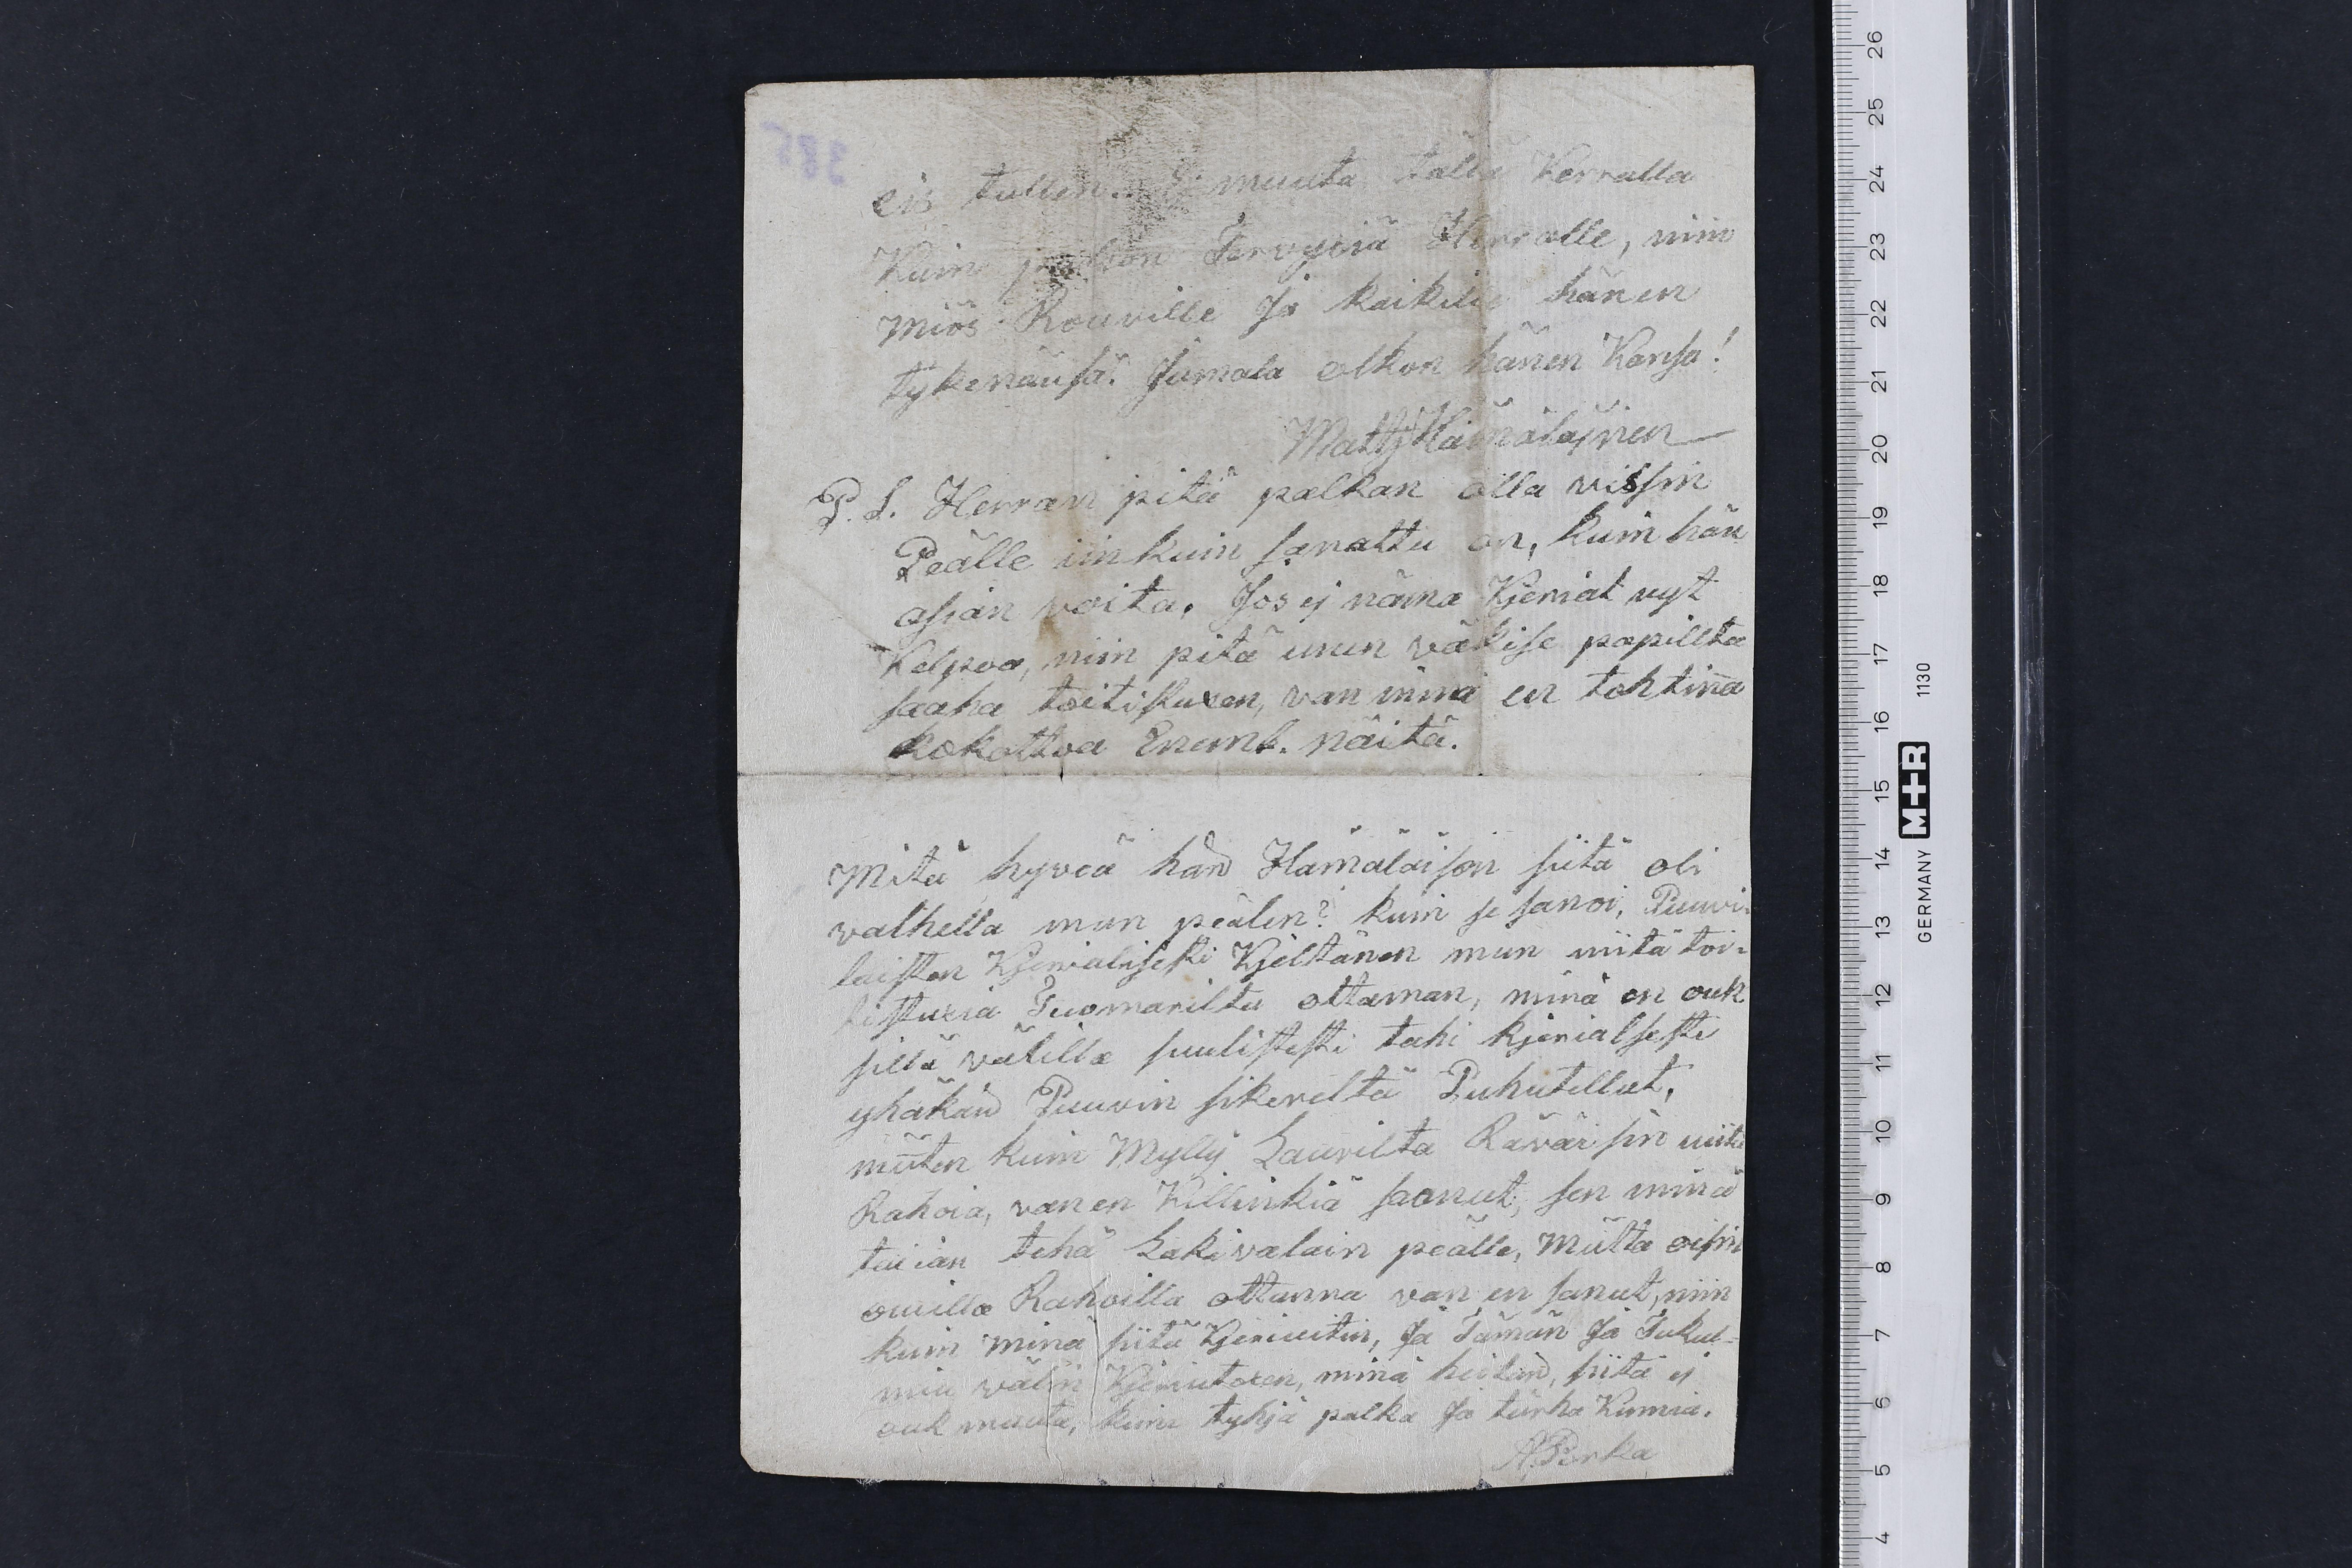 eis tullen. Ei muuta tällä Kerralla
Kuin paljon Terveyxiä Herralle, niin
Miös Rouville Ja kaikille hänen
tykenäusä. Jumala olkon hänen Kansa!
Matty Hämäläjnen
P. S. Herran pitä palkan olla vissin
Peälle iin kuin sanattu on, kuin hän
asian voita. Jos ej näma Kjeriat nyt
Kelpoa, niin pitä unen väkise papillta
saaha toitistuxen, van minä en tohtina
kokottoa Enemb. näitä.
Mitä hyveä hän Hämäläison siitä oli
valhella mun peälen? kuin se sanoi, Puuvi-
laisten Kjerialisesti Kjeltänen mun niitä toi-
tistuxia Tuomarilta ottaman, minä en ouk
sillä välillä suulisesti tahi kjerialsesti
yhäkän Puuvin sikereltä Puhutellut,
müten kuin Mylly Laurilta Räväisin niitä
Rahoia, van en Killinkiä saanut, sen minä
taijan tehä Lakivalain peälle, Mütta oisin
ouilla Rahoilla ottanna van en sanut, niin
kuin minä siitä Kjeriuitin, Ja Tämän Ja Tukul-
min välin Kjeriutoxen, minä heitän, siitä ej
ouk muuta, kuin tyhjä palka Ja turha Kunnia.
A. Porka
385
26 25 24 23 22 21 20 19 18 17 16 15 14 13 12 11 10 9 8 7 6 5 4
GERMANY M+R 1130